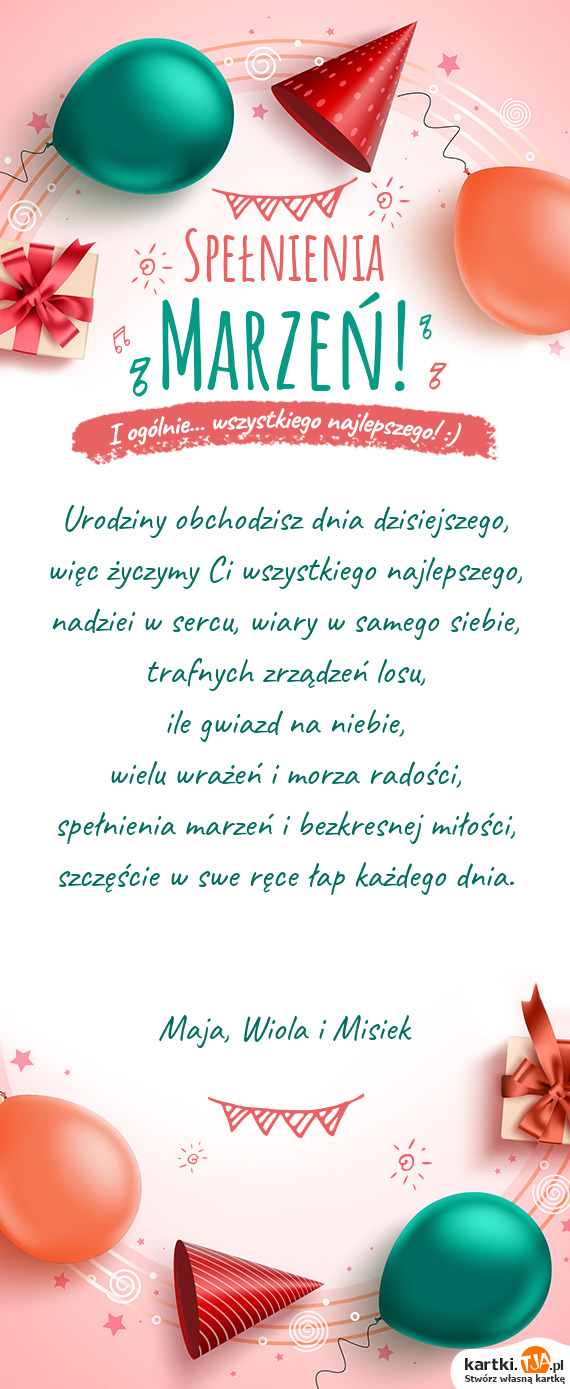 Spełnienia
Marzeń!
I ogólnie... wszystkiego najlepszego! :)
Urodziny obchodzisz dnia dzisiejszego,
więc życzymy Ci wszystkiego najlepszego,
nadziei w sercu, wiary w samego siebie,
trafnych zrządzeń losu,
ile gwiazd na niebie,
wielu wrażeń i morza radości,
spełnienia marzeń i bezkresnej miłości,
szczęście w swe ręce łap każdego dnia.
Maja, Wiola i Misiek
kartki.TJA.pl
Stwórz własną kartkę